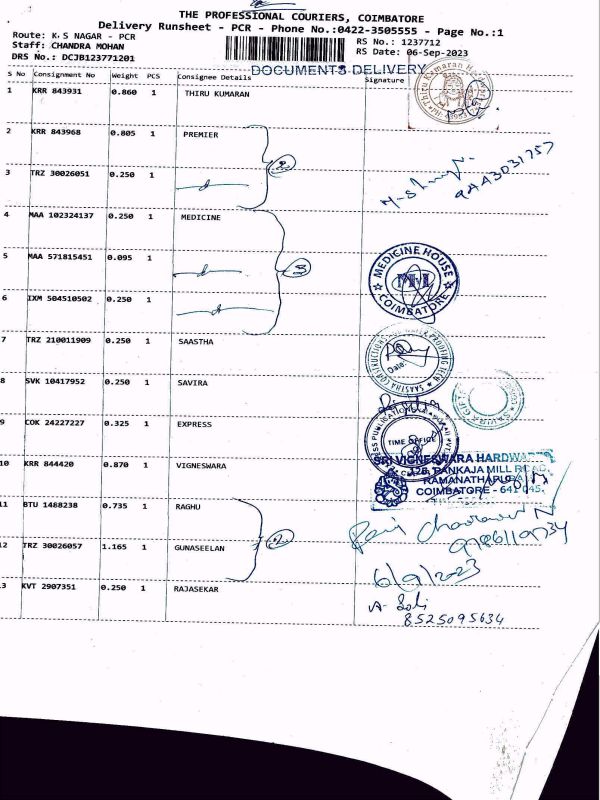 THE PROFESSIONAL COURIERS, COIMBATORE
Delivery Runsheet - PCR - Phone No.:0422-3505555 - Page No.:1
Route: K.S NAGAR - PCR
RS No.: 1237712
Staff: CHANDRA MOHAN
RS Date: 06-Sep-2023
DRS No.: DCJB123771201
DOCUMENTS DELIVERY
S No Consignment No Weight PCS Consignee Details Signature
1 KRR 843931 0.860 1 THIRU KUMARAN
Thiru Kumaran
2 KRR 843968 0.805 1 PREMIER
2
3 TRZ 30026051 0.250 1
4 MAA 102324137 0.250 1 MEDICINE
5 MAA 571815451 0.095 1
3
MEDICINE HOUSE
COIMBATORE
6 IXM 504510502 0.250 1
7 TRZ 210011909 0.250 1 SAASTHA
Date:
8 SVK 10417952 0.250 1 SAVIRA
9 COK 24227227 0.325 1 EXPRESS
TIME OFFICE
10 KRR 844420 0.870 1 VIGNESWARA
SRI VIGNESWARA HARDWARES
128, PANKAJA MILL ROAD,
RAMANATHAPURAM
COIMBATORE - 641 045.
11 BTU 1488238 0.735 1 RAGHU
2
12 TRZ 30026057 1.165 1 GUNASEELAN
6/9/2023
13 KVT 2907351 0.250 1 RAJASEKAR
8525095634